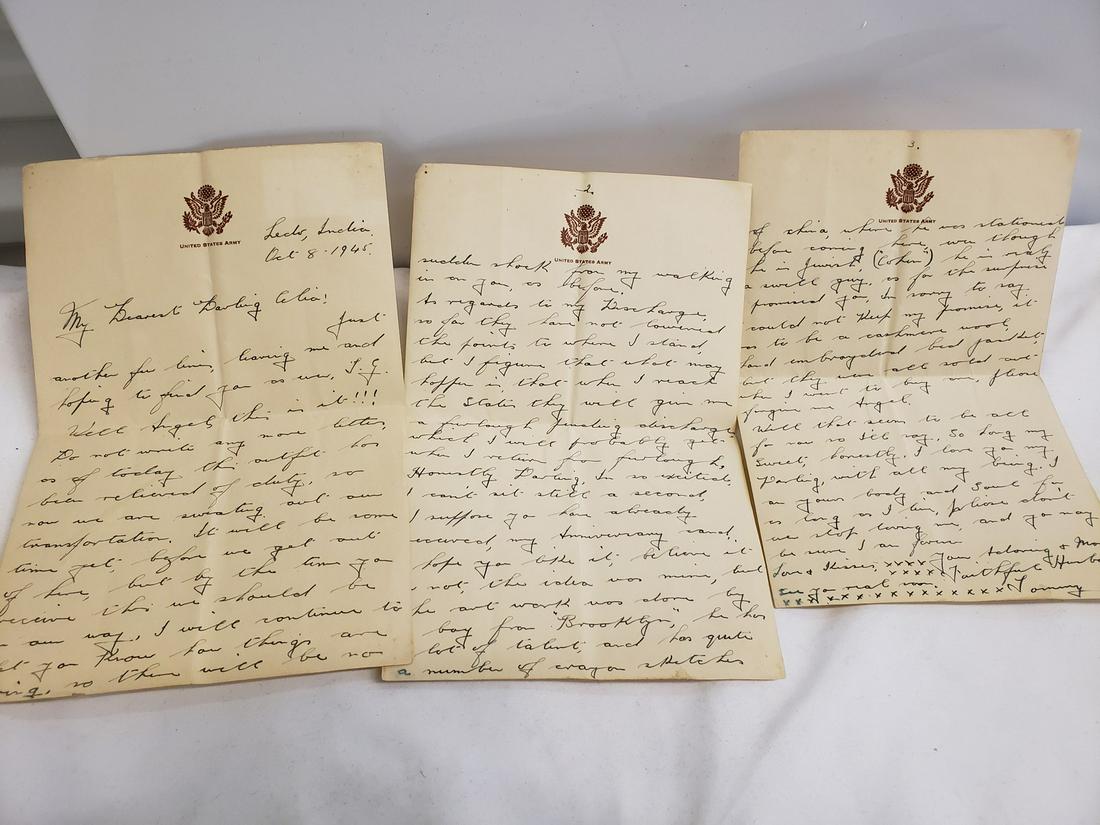 UNITED STATES ARMY
Ledo, India
Oct 8 - 1945.
My Dearest Darling Celia!
Just
another few lines, leaving me and
hoping to find you as well, T.G.
Well Angel, this is it!!!
Do not write any more letters,
as of today this outfit has
been relieved of duty, so
now we are sweating out our
transportation. It will be some
time yet, before we get out
of here, but by the time you
receive this we should be
our way. I will continue to
let you know how things are
so there will be no
2.
UNITED STATES ARMY
sudden shock from my walking
in on you, as before.
As regards to my Discharge,
so far they have not lowered
the points to where I stand
but I figure that what may
happen is, that when I reach
the States they will give me
a furlough pending discharge
which I will probably get
when I return from furlough.
Honestly Darling, I'm so excited
I can't sit still a second.
I suppose you have already
received, my Anniversary card,
hope you like it, believe it
not, the idea was mine, but
he art work was done by
boy from Brooklyn", he has
lot of talent, and has quite
a number of crayon sketches
3.
UNITED STATES ARMY
of china, where he was stationed
before coming here, even though
he is Jewish, (Cohen) he is really
a swell guy, as for the surprise
promised you, I'm sorry to say
could not keep my promise, it
as to be a cashmere wool,
hand embroydered bed jacket
but they were all sold out
when I went to buy one, please
forgive me Angel.
Well that seems to be all
for now so I'll say, So long my
Sweet, honestly, I love you my
Darling, with all my being. I
am yours body and Soul for
as long as I live, please don't
ever stop loving me, and you may
be sure I am forever
Love & Kisses, xxxx your Adoring & Most
xxxxx faithful Husba
see you real soon
xx xxxxxxxxxxxxx Tommy